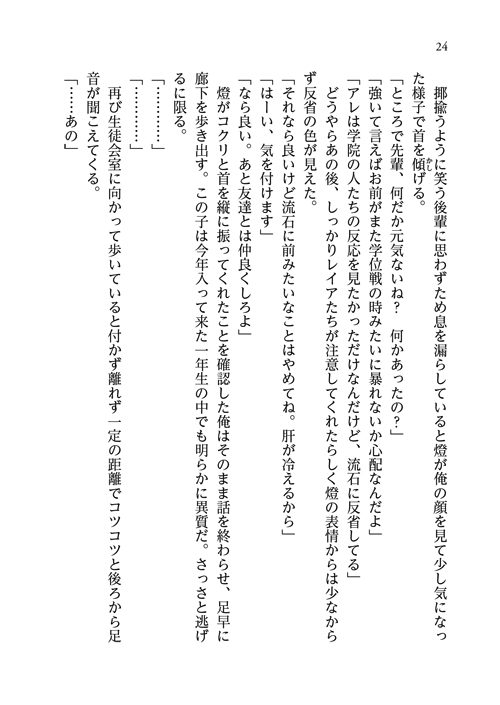 24
揶揄うように笑う後輩に思わずため息を漏らしていると燈が俺の顔を見て少し気になっ
た様子で首を傾げる。
かし
「ところで先輩、何だか元気ないね？　何かあったの？」
「強いて言えばお前がまた学位戦の時みたいに暴れないか心配なんだよ」
「アレは学院の人たちの反応を見たかっただけなんだけど、流石に反省してる」
どうやらあの後、しっかりレイアたちが注意してくれたらしく燈の表情からは少なから
ず反省の色が見えた。
「それなら良いけど流石に前みたいなことはやめてね。肝が冷えるから」
「はーい、気を付けます」
「なら良い。あと友達とは仲良くしろよ」
燈がコクリと首を縦に振ってくれたことを確認した俺はそのまま話を終わらせ、足早に
廊下を歩き出す。この子は今年入って来た一年生の中でも明らかに異質だ。さっさと逃げ
るに限る。
「…………」
「…………」
再び生徒会室に向かって歩いていると付かず離れず一定の距離でコツコツと後ろから足
音が聞こえてくる。
「……あの」